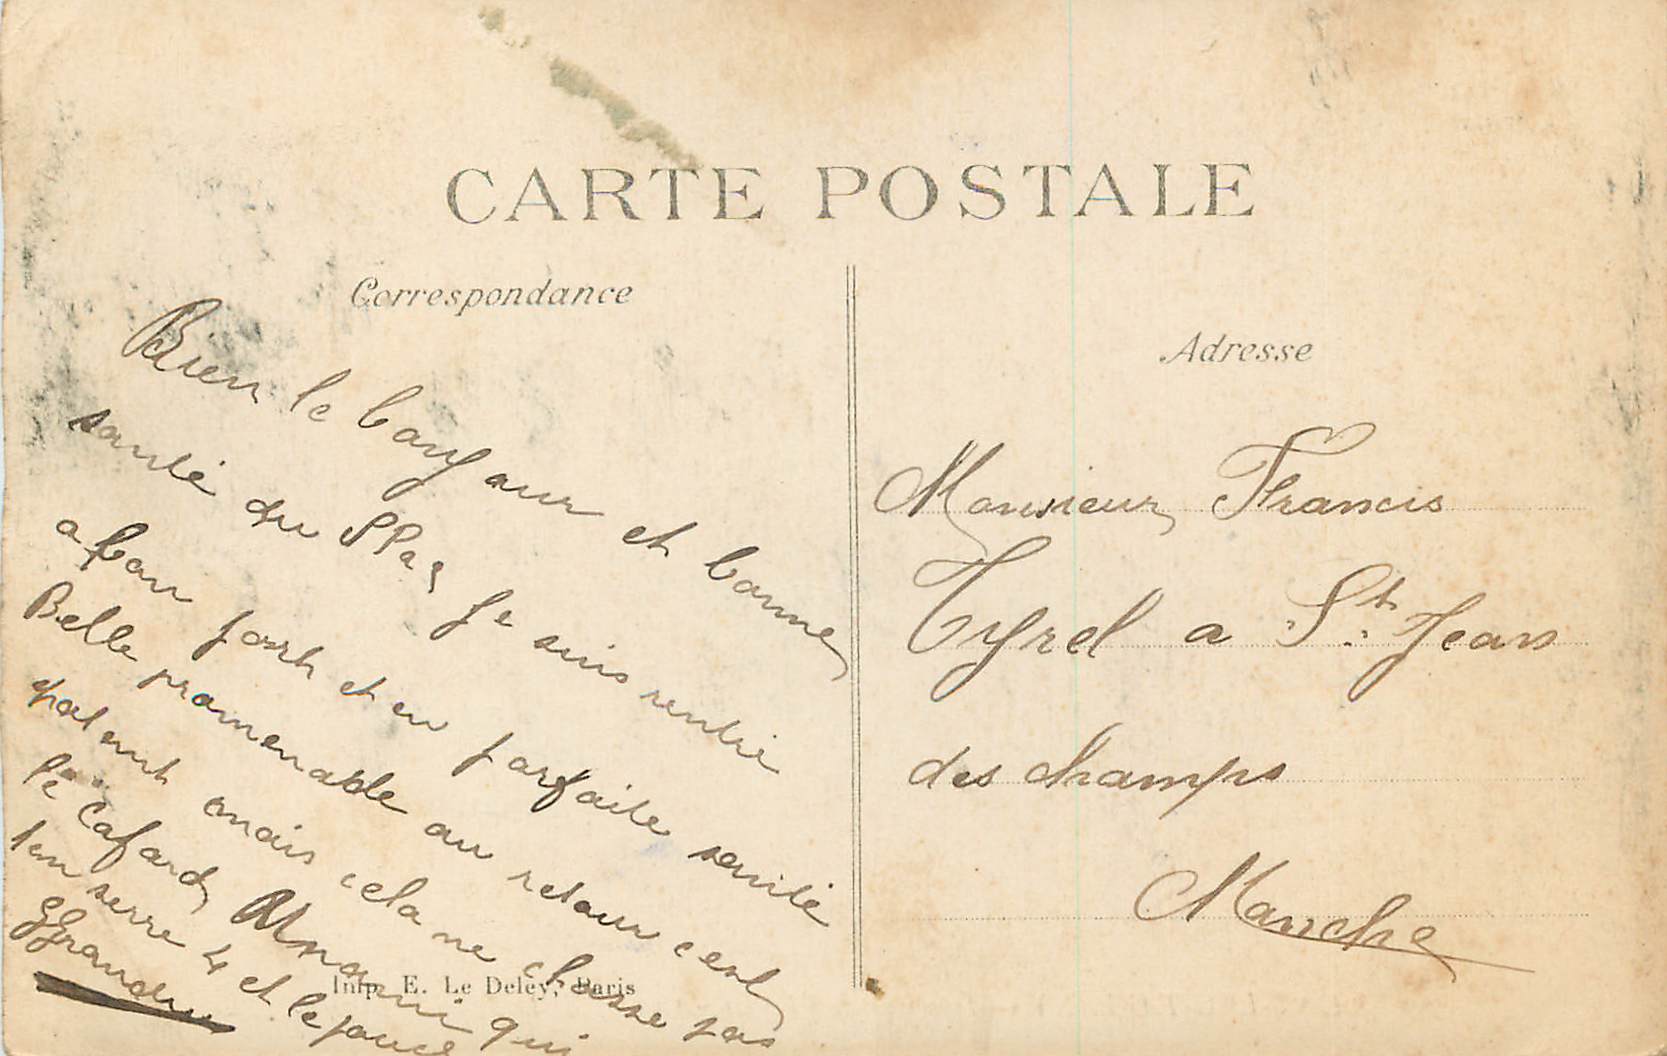 CARTE POSTALE
Correspondance
Adresse
Bien le bonjour et bonne
santé du Je suis rentré
a bon port et en parfaite santé
Belle promenable au retour c'est
patent mais cela ne chasse pas
le Cafard, qui
t'en serre 4 et le pouce
Imp. E. Le Deley, Paris
Monsieur Francis
Tyrel a St. Jean
des champs
Manche